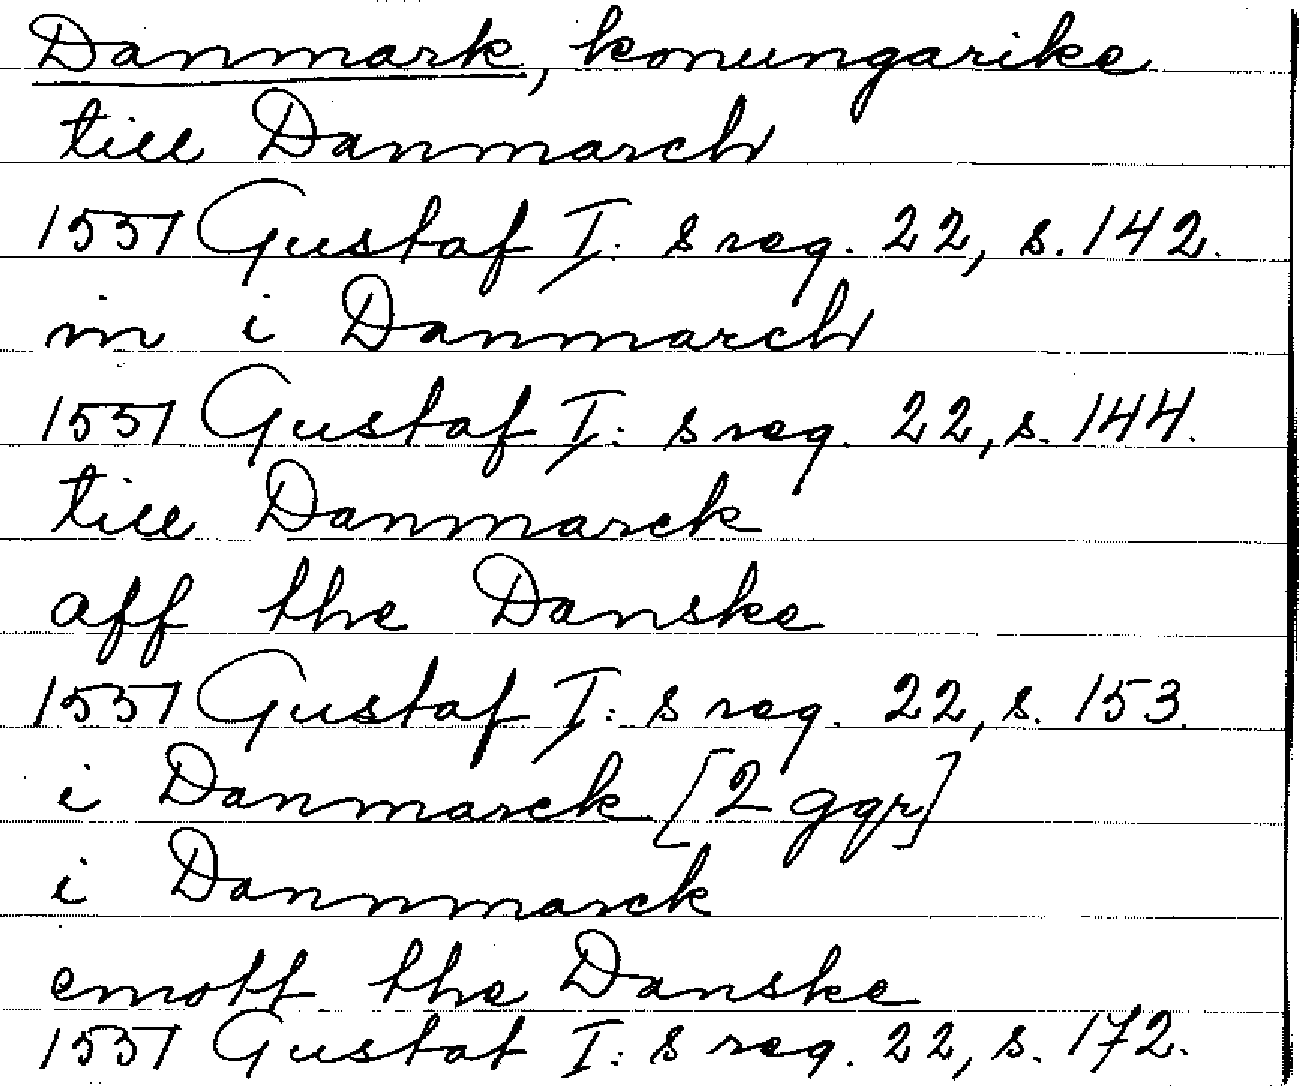 Danmark, konungarike
till Danmarch
1551 Gustaf I: s reg. 22, s. 142.
in i Danmarch
1551 Gustaf I: s reg. 22, s. 144.
till Danmarck
aff the Danske
1551 Gustaf I: s reg. 22, s. 153.
i Danmarck [2 ggr]
i Dannmarck
emott the Danske
1551 Gustaf I: s reg. 22, s. 172.